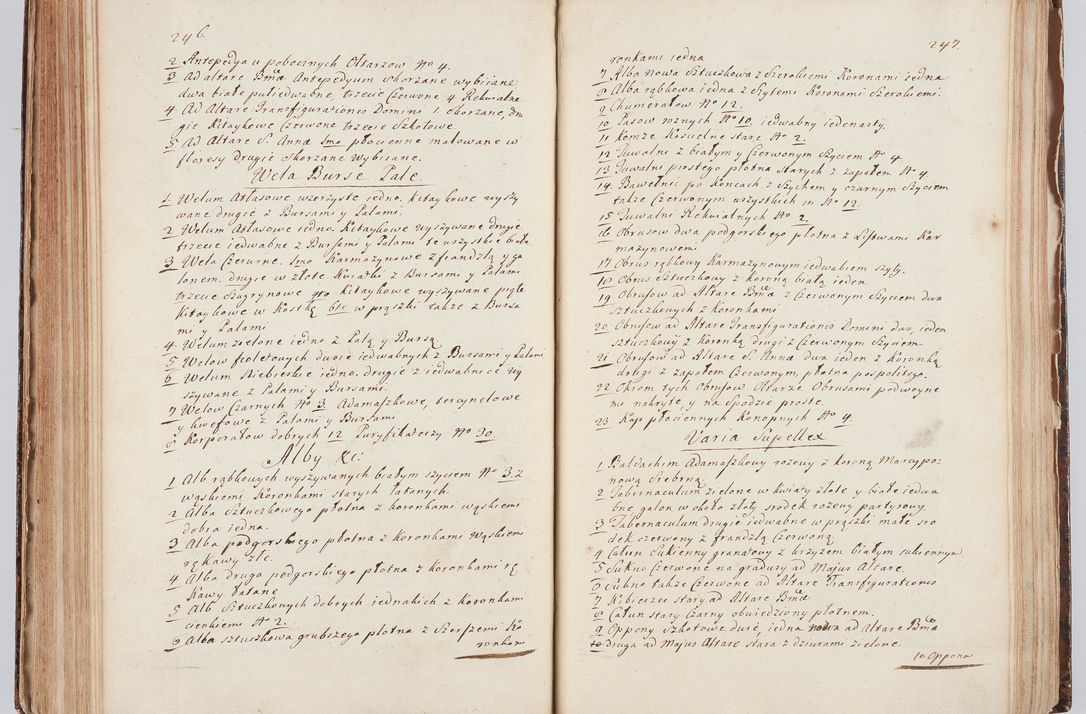 246.
2 Antepedya u pobocznych Ołtarzow No 4.
3 Ad altare Bmæ Antepedyum skorzane wybiiane
dwa białe pułiedwabne, trzecie Czerwone 4 Rekuialne
4. Ad Altare Transfigurationis Domini 1. Skorzane, dru
gie Kitaykowe Czerwone trzecie Szkotowe.
5 Ad Altare S. Anna 1mo płocienne malowane w
floresy drugie skorzane wybiiane.
Wela Burse Pale.
1. Welum Atłasowe wzorzyste iedno, Kitaykowe wyszy
wane drugie z Bursami y Palami.
2 Welum Atłasowe iedno. Kitaykowe wyszywane drugie
trzecie iedwabne z Bursami y Palami te wszystkie białe.
3 Wela Czerwone. 1mo Karmazynowe z frandzlą y ga
lonem. drugie w złote Kwiatki z Bursami y Palami
trzecie Szagrynowe 4to Kitaykowe wyszywane piąte
Kitaykowe w Kostkę 6te w prążki także z Bursa
mi y Palami
4 Welum zielone iedno z Palą y Bursą
5 Welow fioletowych dwoie iedwabnych z Bursami y Palami
6 Welum Niebieskie iedno. drugie z iedwabnice wy
szywane z Palami y Bursami.
7 Welow Czarnych No 3. Adamaszkowe, tercynelowe
y kwefowe z Palami y Bursami
8 Korporałow dobrych 12 Puryfikaterzy No 30.
Alby &c:
1 Alb rąbkowych wyszywanych białym szyciem No 3. z
wąskiemi Koronkami starych łatanych.
2 Alba Sztuczkowego płotna z koronkami wąskiemi
dobra iedna.
3 Alba podgorskiego płotna z Koronkami wąskiemi
rękawy złe.
4 Alba druga podgorskiego płotna z Koronkami rę
Kawy łatane
5 Alb Sztuczkowych dobrych iednakich z Koronkami
cienkiemi No 2.
6 Alba sztuczkowa grubszego płotna z Szerszemi Ko
ronkam
247.
ronkami iedna
7 Alba nowa Sztuczkowa z Szerokiemi Koronami iedna
8 Alba rąbkowa iedna z Szytemi Koronami Szerokiemi.
9 Humerałow No 12.
10 Pasow roznych No 10. iedwabny iedenasty.
11 Komże Kościelne stare No 2.
12 Tuwalni z białym y Czerwonym Szyciem No 4.
13 Tuwalni prostego płotna starych z zapałem No 4.
14. Bawełnic po Koncach z Szychem y czarnym Szyciem
także Czerwonym wszystkich in No 12.
15 Tuwalni Rekuialnych No 2.
16 Obrusow dwa podgorskiego płotna z Listwami Kar
mazynowemi
17 Obrus rąbkowy Karmazynowym iedwabiem szyty.
18 Obrus Sztuczkowy z Koroną białą ieden.
19 Obrusow ad Altare Bmæ z Czerwonym Szyciem dwa
sztuczkowych z Koronkami
20 Obrusow ad Altare Transfigurationis Domini dwa, ieden
sztuczkowy z Koronką drugi z Czerwonym Szyciem.
21 Obrusow ad Altare S. Anna dwa ieden z Koronką
drugi z zapałem Czerwonym, płotna pospolitego.
22 Okrom tych Obrusow Ołtarze Obrusami podwoyne
mi nakryte, y na spodzie proste.
23 Kap płociennych Konopnych No 4.
Varia Supellex
1 Baldachim Adamaszkowy rozowy z Koroną Marcypa-
nową Srebrną
2 Tabernaculum zielone w kwiaty złote y białe iedwa
bne galon w około złoty srodek rozowy partyrowy.
3 Tabernaculum drugie iedwabne w prążki małe sro
dek czerwony z frandzlą Czerwoną
4 Całun Sukienny granatowy z krzyżem białym sukiennym
5 Sukno Czerwone na gradusy ad Majus Altare.
6 Sukno także Czerwone ad Altare Transfigurationis
7 Kobierzec stary ad Altare Bmæ
8 Całun stary Czarny obwiedziony płotnem.
9 Oppony Szkotowe duże, iedna nowa ad Altare Bmæ
10 druga ad Majus Altare stara z dziurami zielone.
10 Oppona